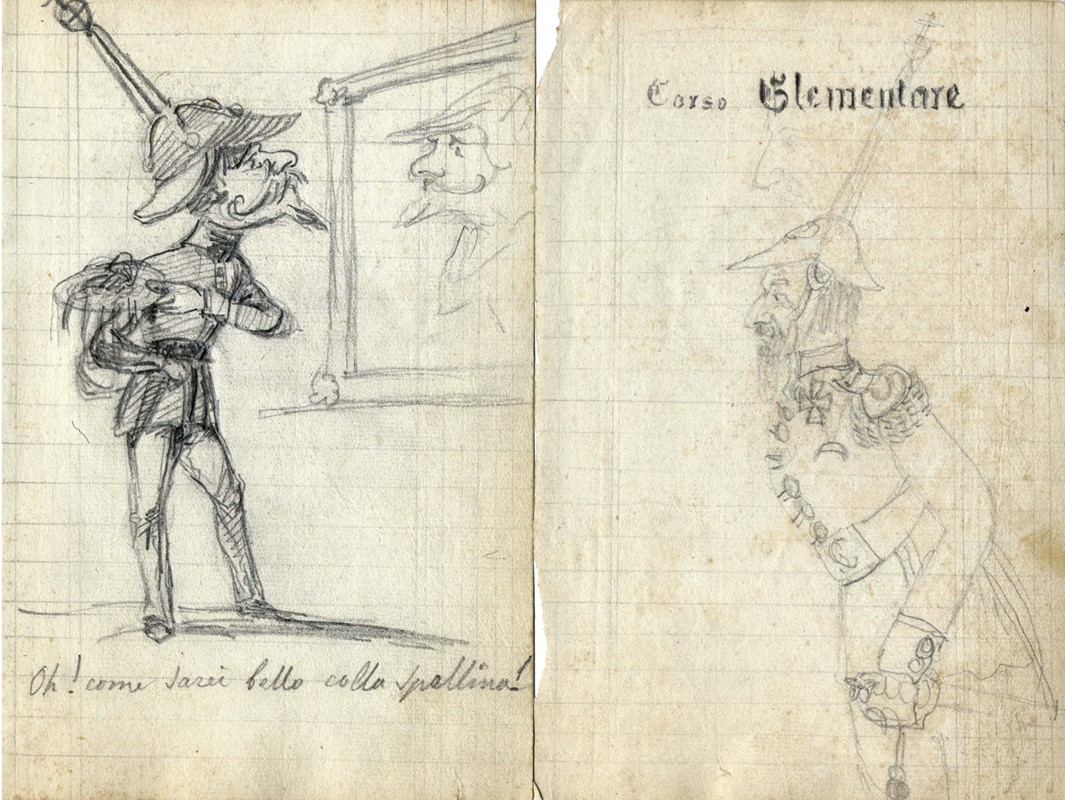 Oh! come sarei bello colla spallina!
Corso Elementare